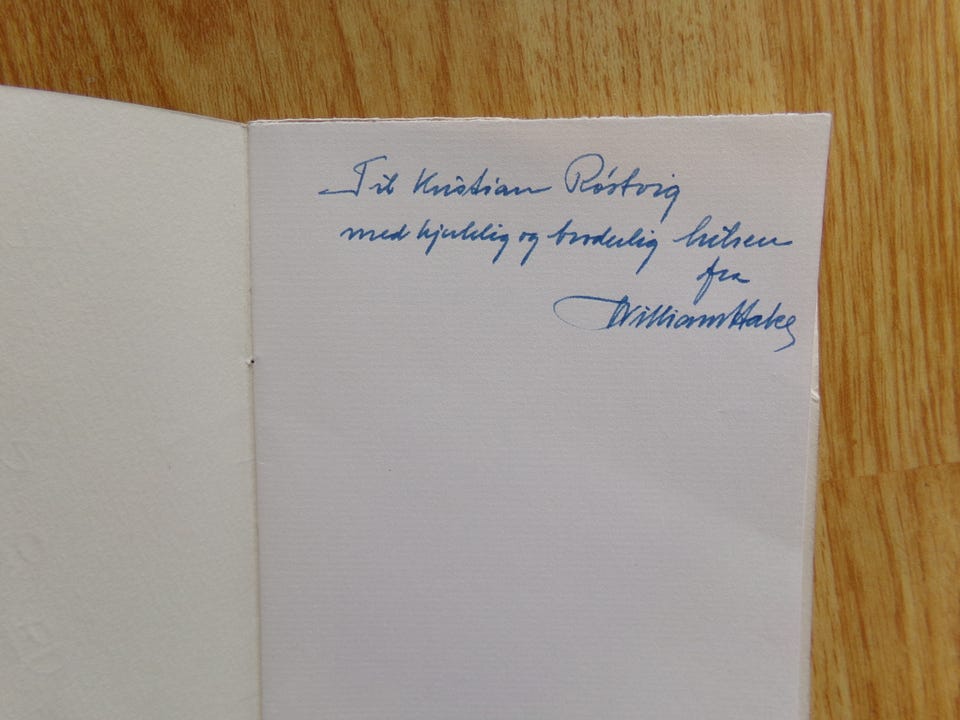 Til Kristian Røstvig
med hjertelig og broderlig hilsen
fra
William Hake